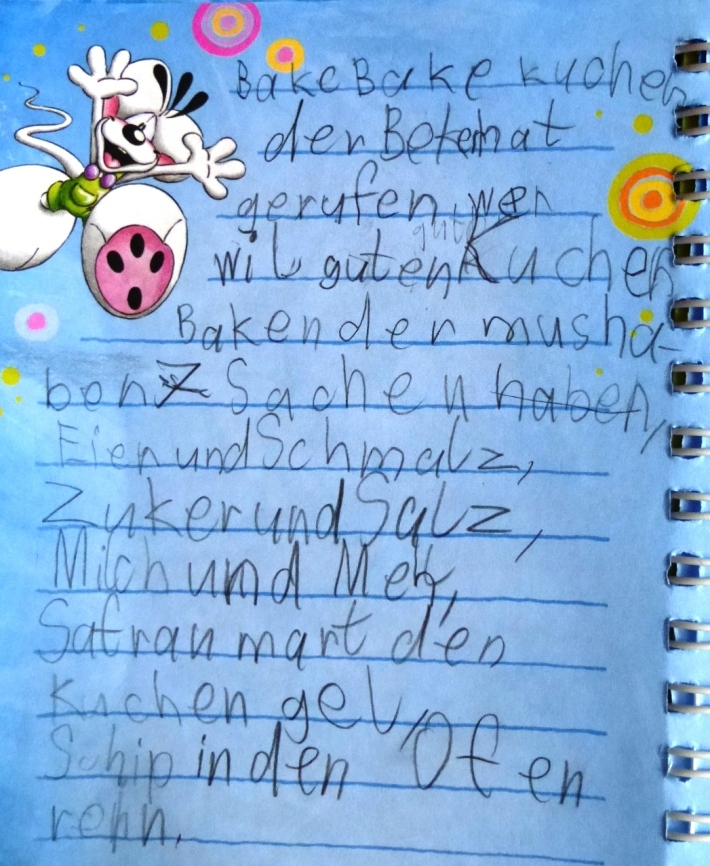 Bake Bake kuchen
der Beterhat
gerufen, wer
gute
wil guten Kuchen
Baken der musha-
ben 7 Sachen haben,
Eier und Schmalz,
Zuker und Salz,
Milch und Mehl,
Safran mart den
Kuchen gel,
Schip in den Ofen
rehn.